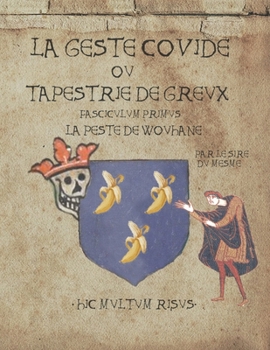 LA GESTE COVIDE
OV
TAPESTRIE DE GREVX
FASCICVLVM PRIMVS
LA PESTE DE WOVHANE
PAR LE SIRE
DV MESME
· HIC MVLTVM RISVS ·